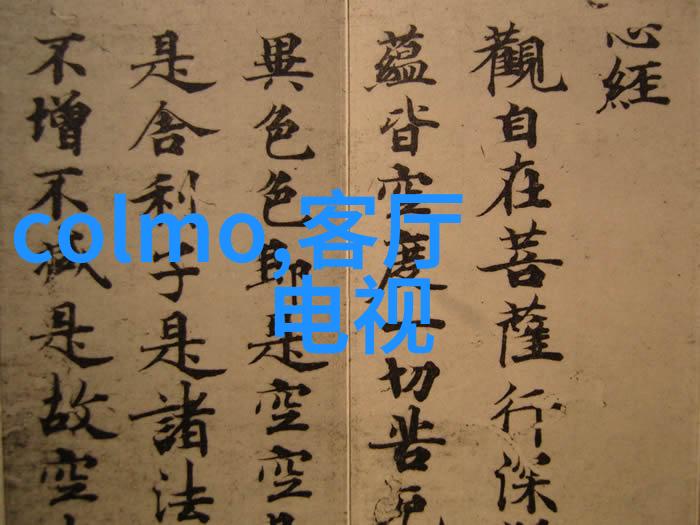 心經
觀自在菩薩行深
蘊皆空度一切苦厄
異色色即是空空是
是舍利子是諸法
不增不減是故空
colmo,客厅
电视